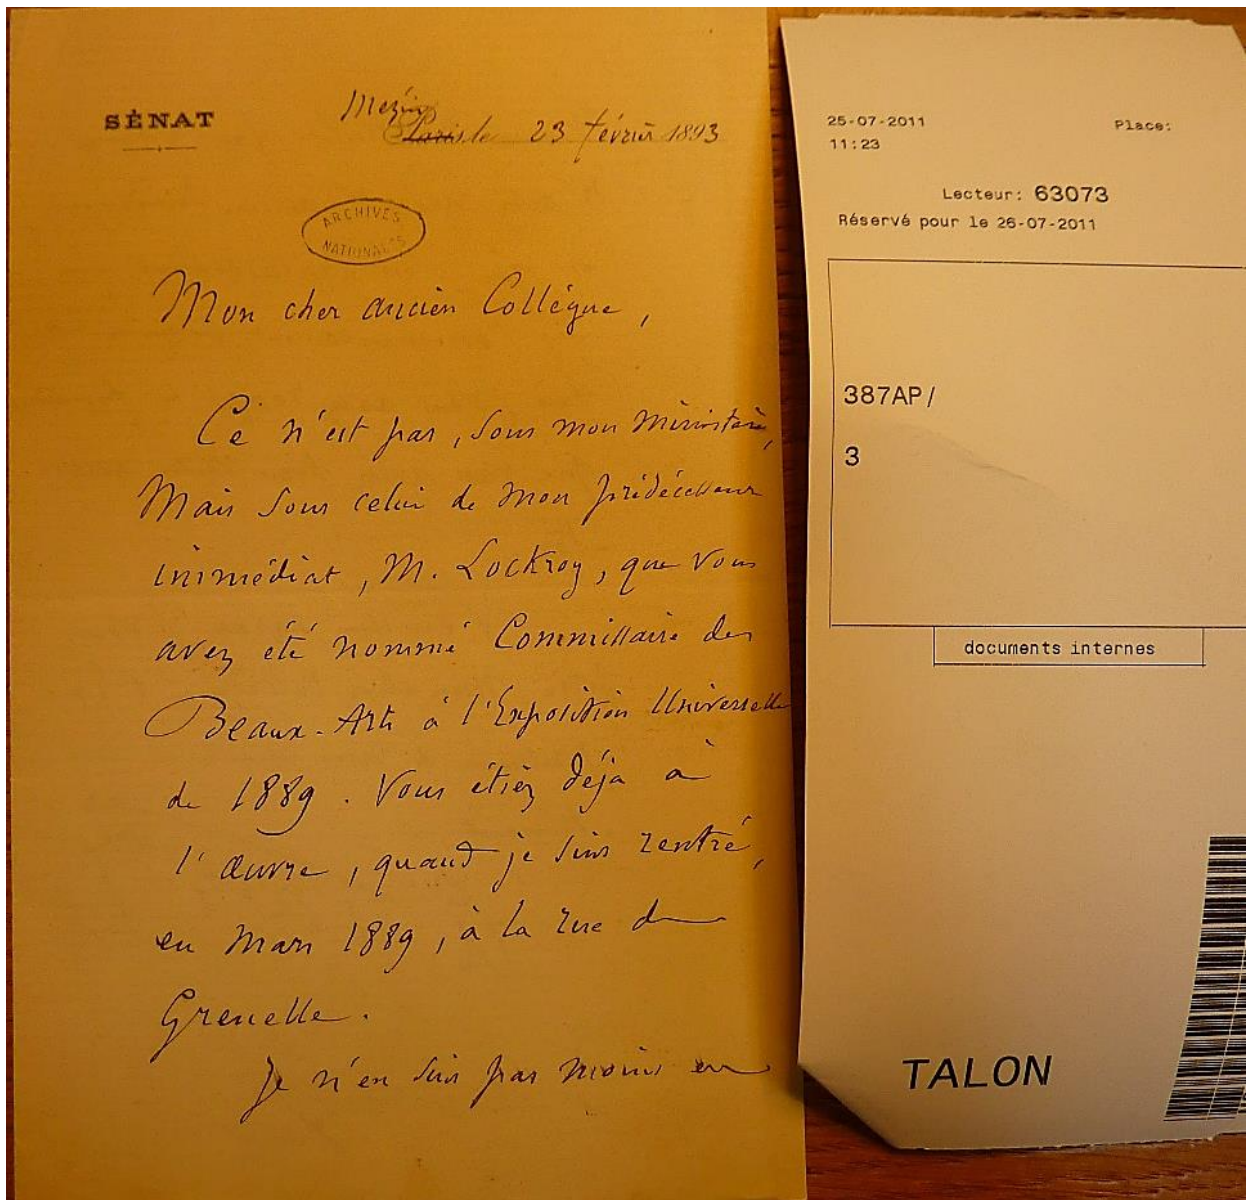 SÉNAT
Mezin
Paris, le 23 février 1893
ARCHIVES
NATIONALES
Mon cher ancien Collègue,
Ce n'est pas, sous mon Ministère,
Mais sous celui de mon prédécesseur
immédiat, M. Lockroy, que vous
avez été nommé Commissaire des
Beaux-Arts à l'Exposition Universelle
de 1889. Vous étiez déjà à
l'œuvre, quand je suis rentré,
en Mars 1889, à la rue de
Grenelle.
Je n'en suis pas moins en
25-07-2011 Place:
11:23
Lecteur: 63073
Réservé pour le 26-07-2011
387AP/
3
documents internes
TALON